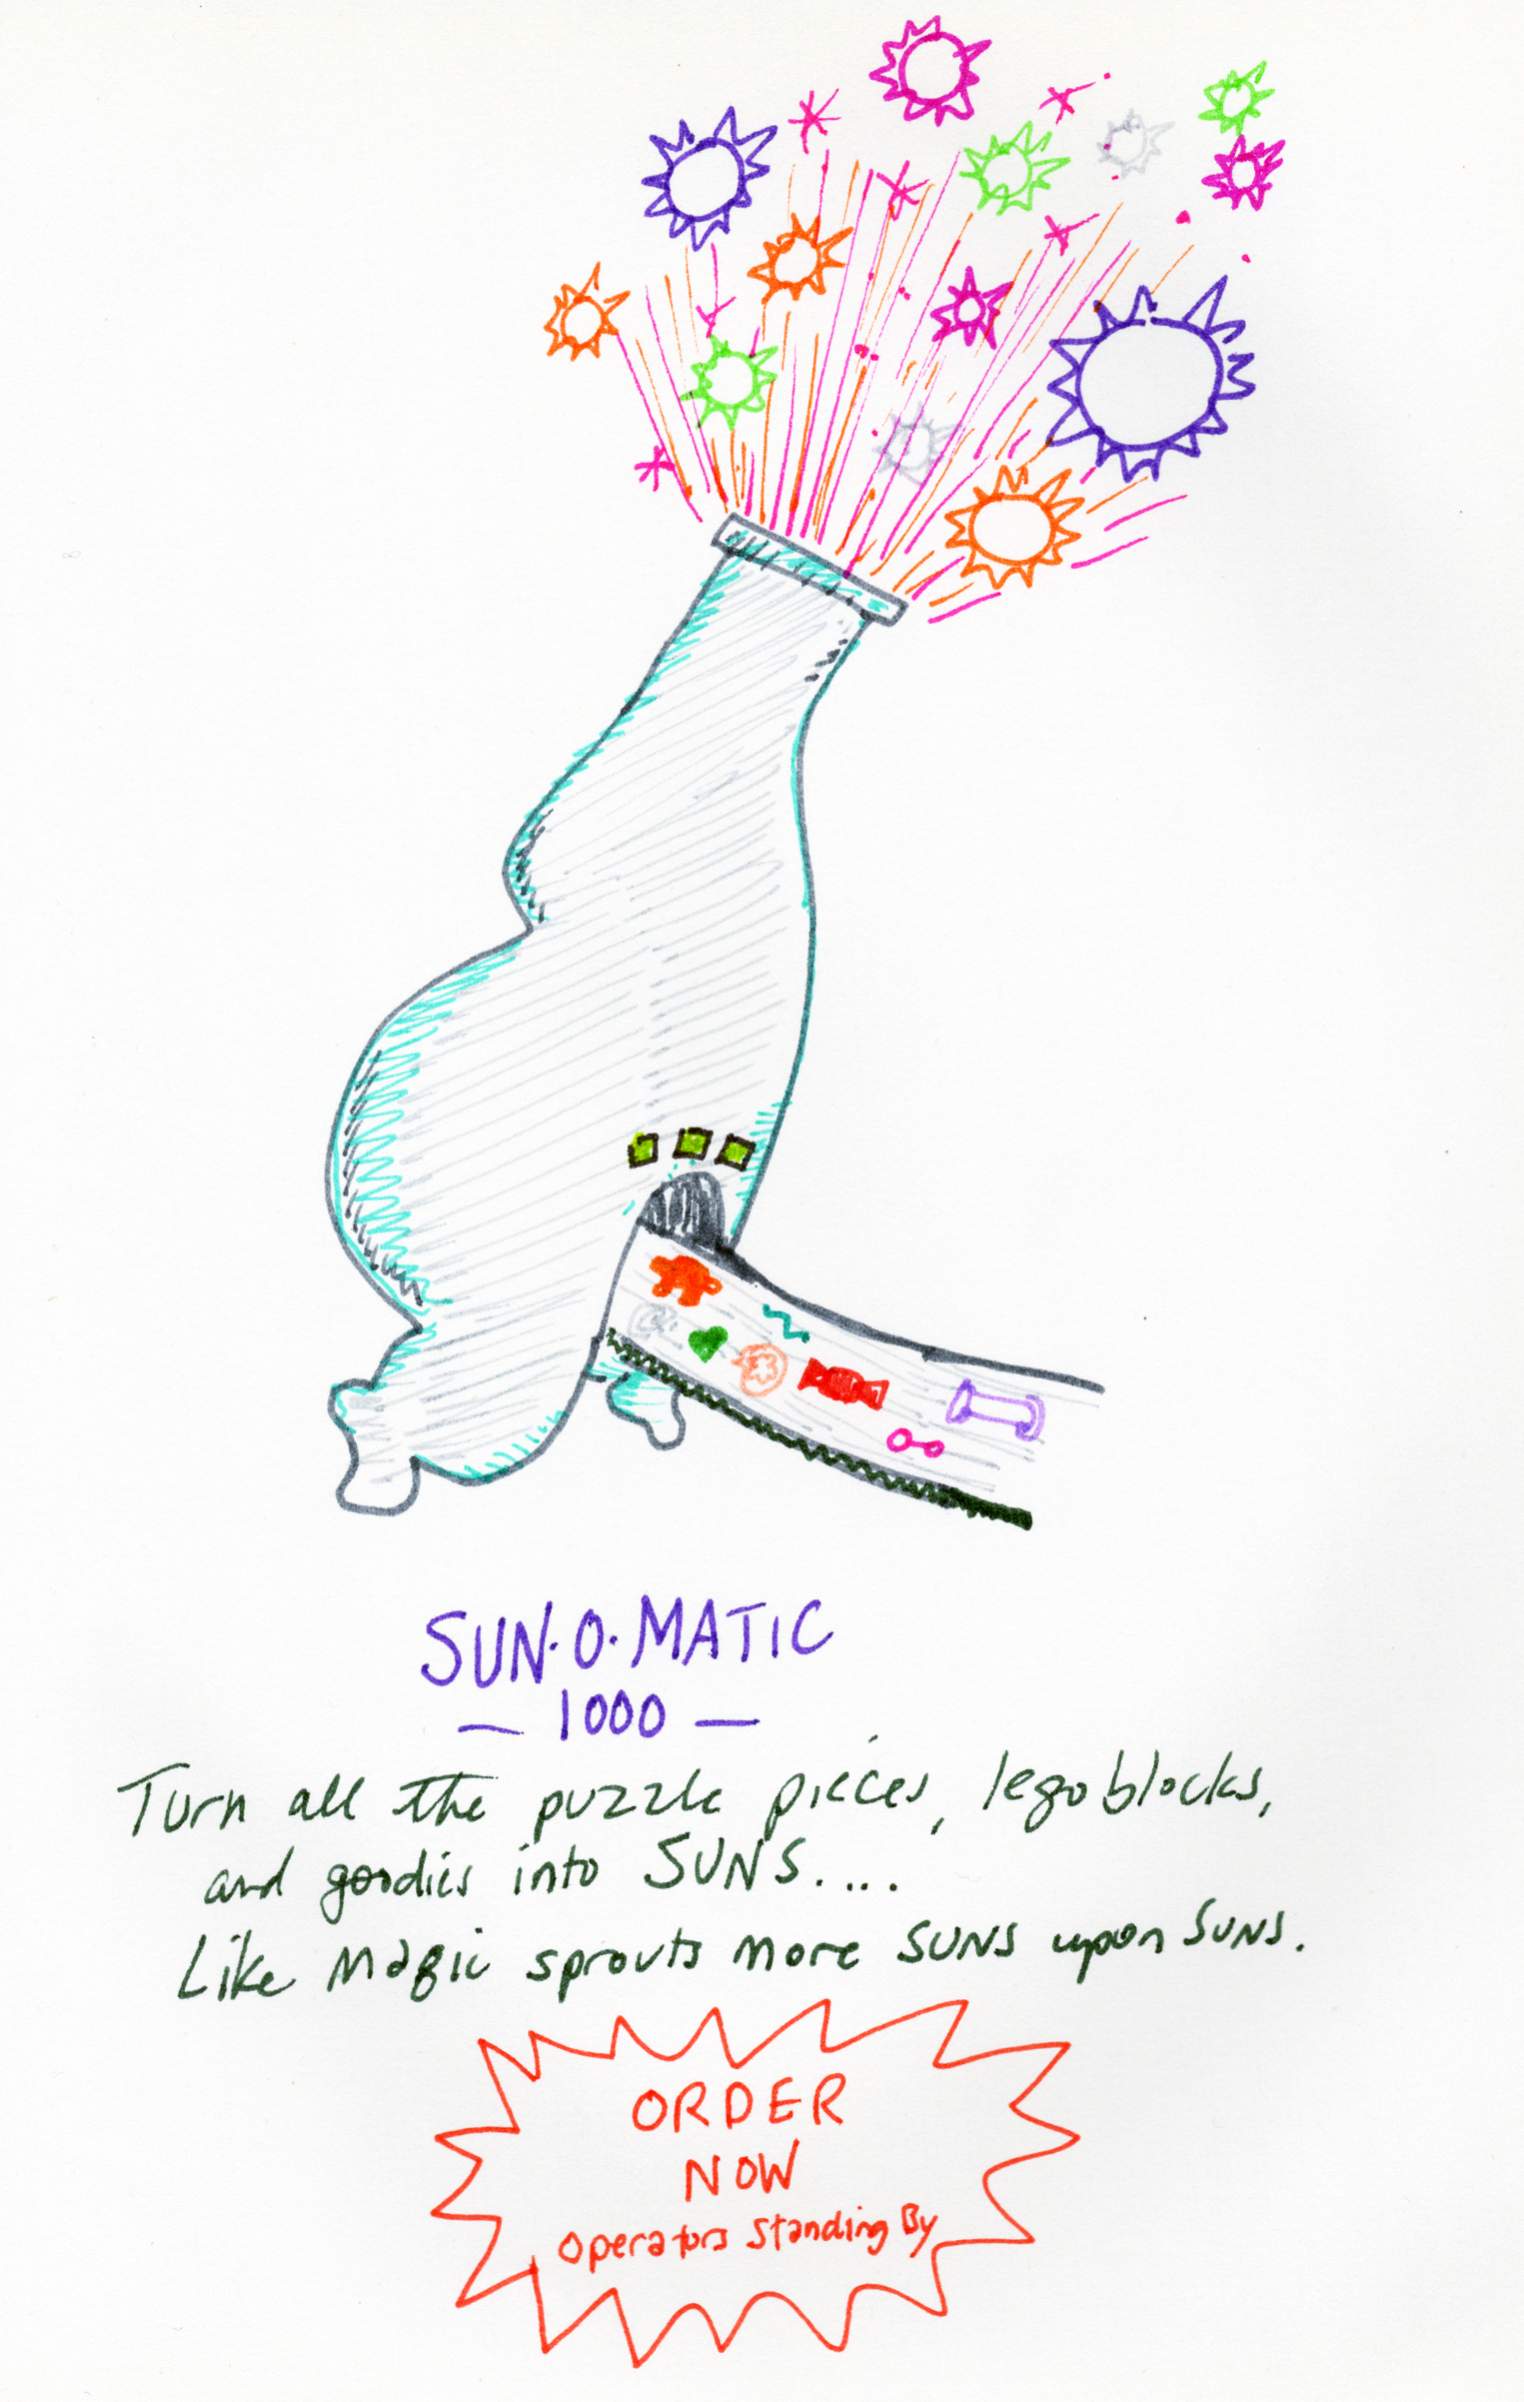 SUN·O·MATIC
— 1000 —
Turn all the puzzle pieces, lego blocks,
and goodies into SUNS....
Like magic sprouts more suns upon suns.
ORDER
NOW
Operators Standing By